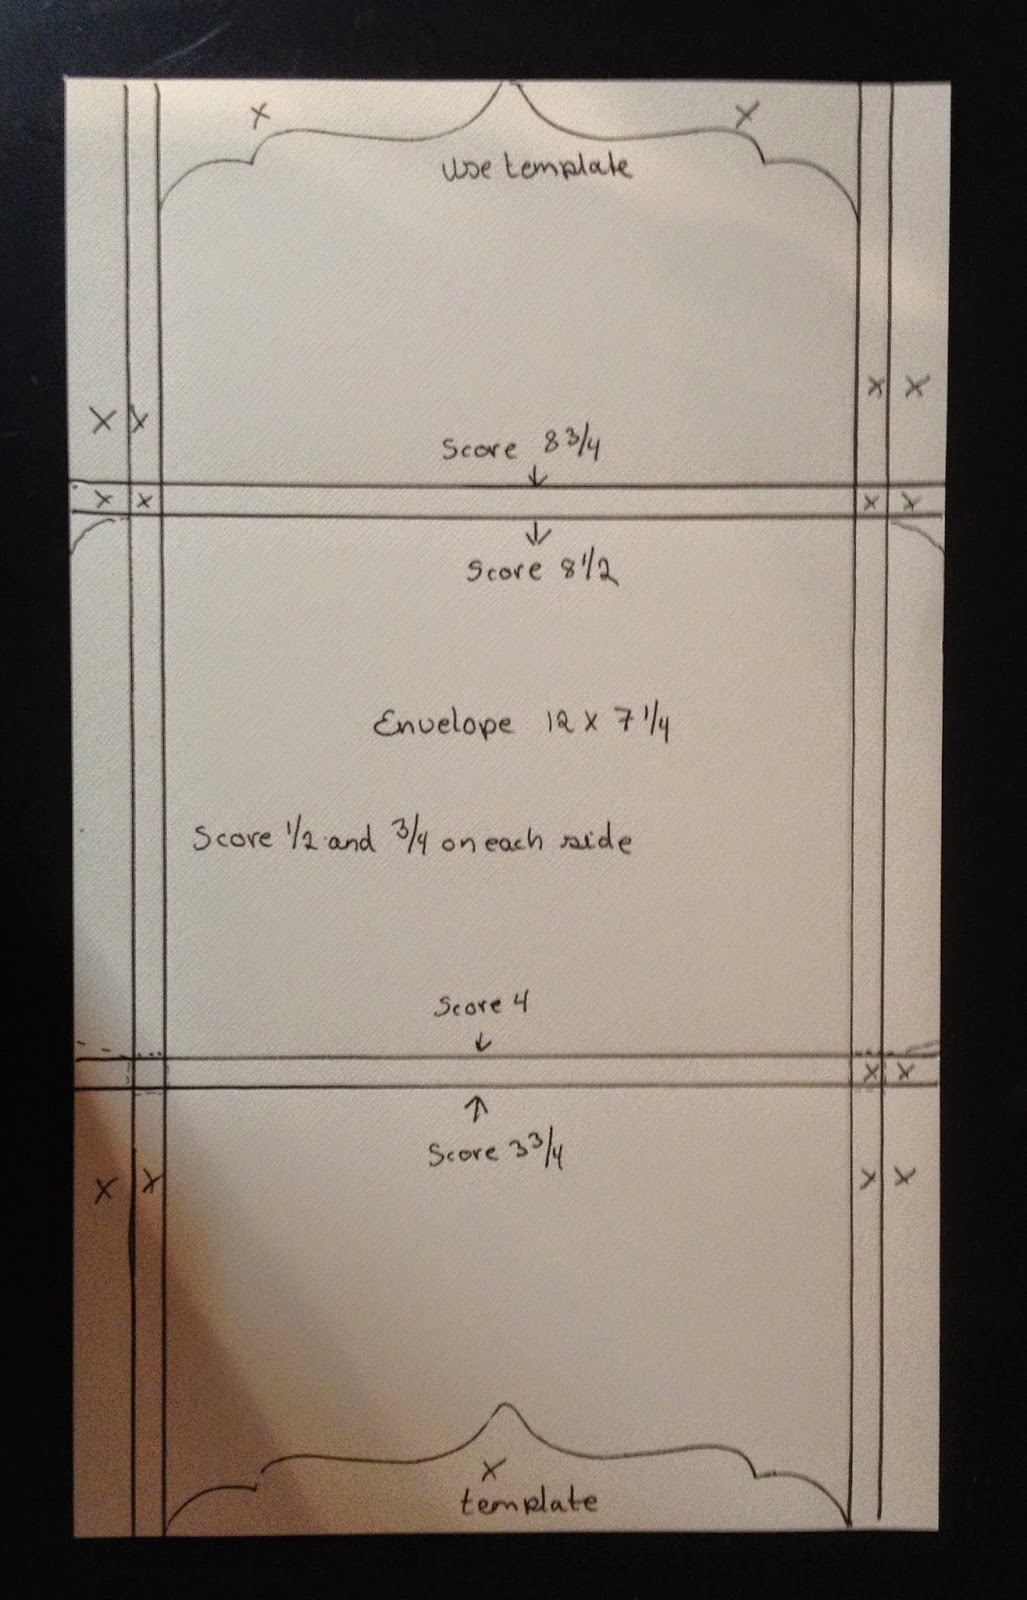 X X
use template
X X
X X
Score 8 3/4
X X X X
Score 8 1/2
Envelope 12 x 7 1/4
Score 1/2 and 3/4 on each side
Score 4
X X
Score 3 3/4
X X X X
X
template